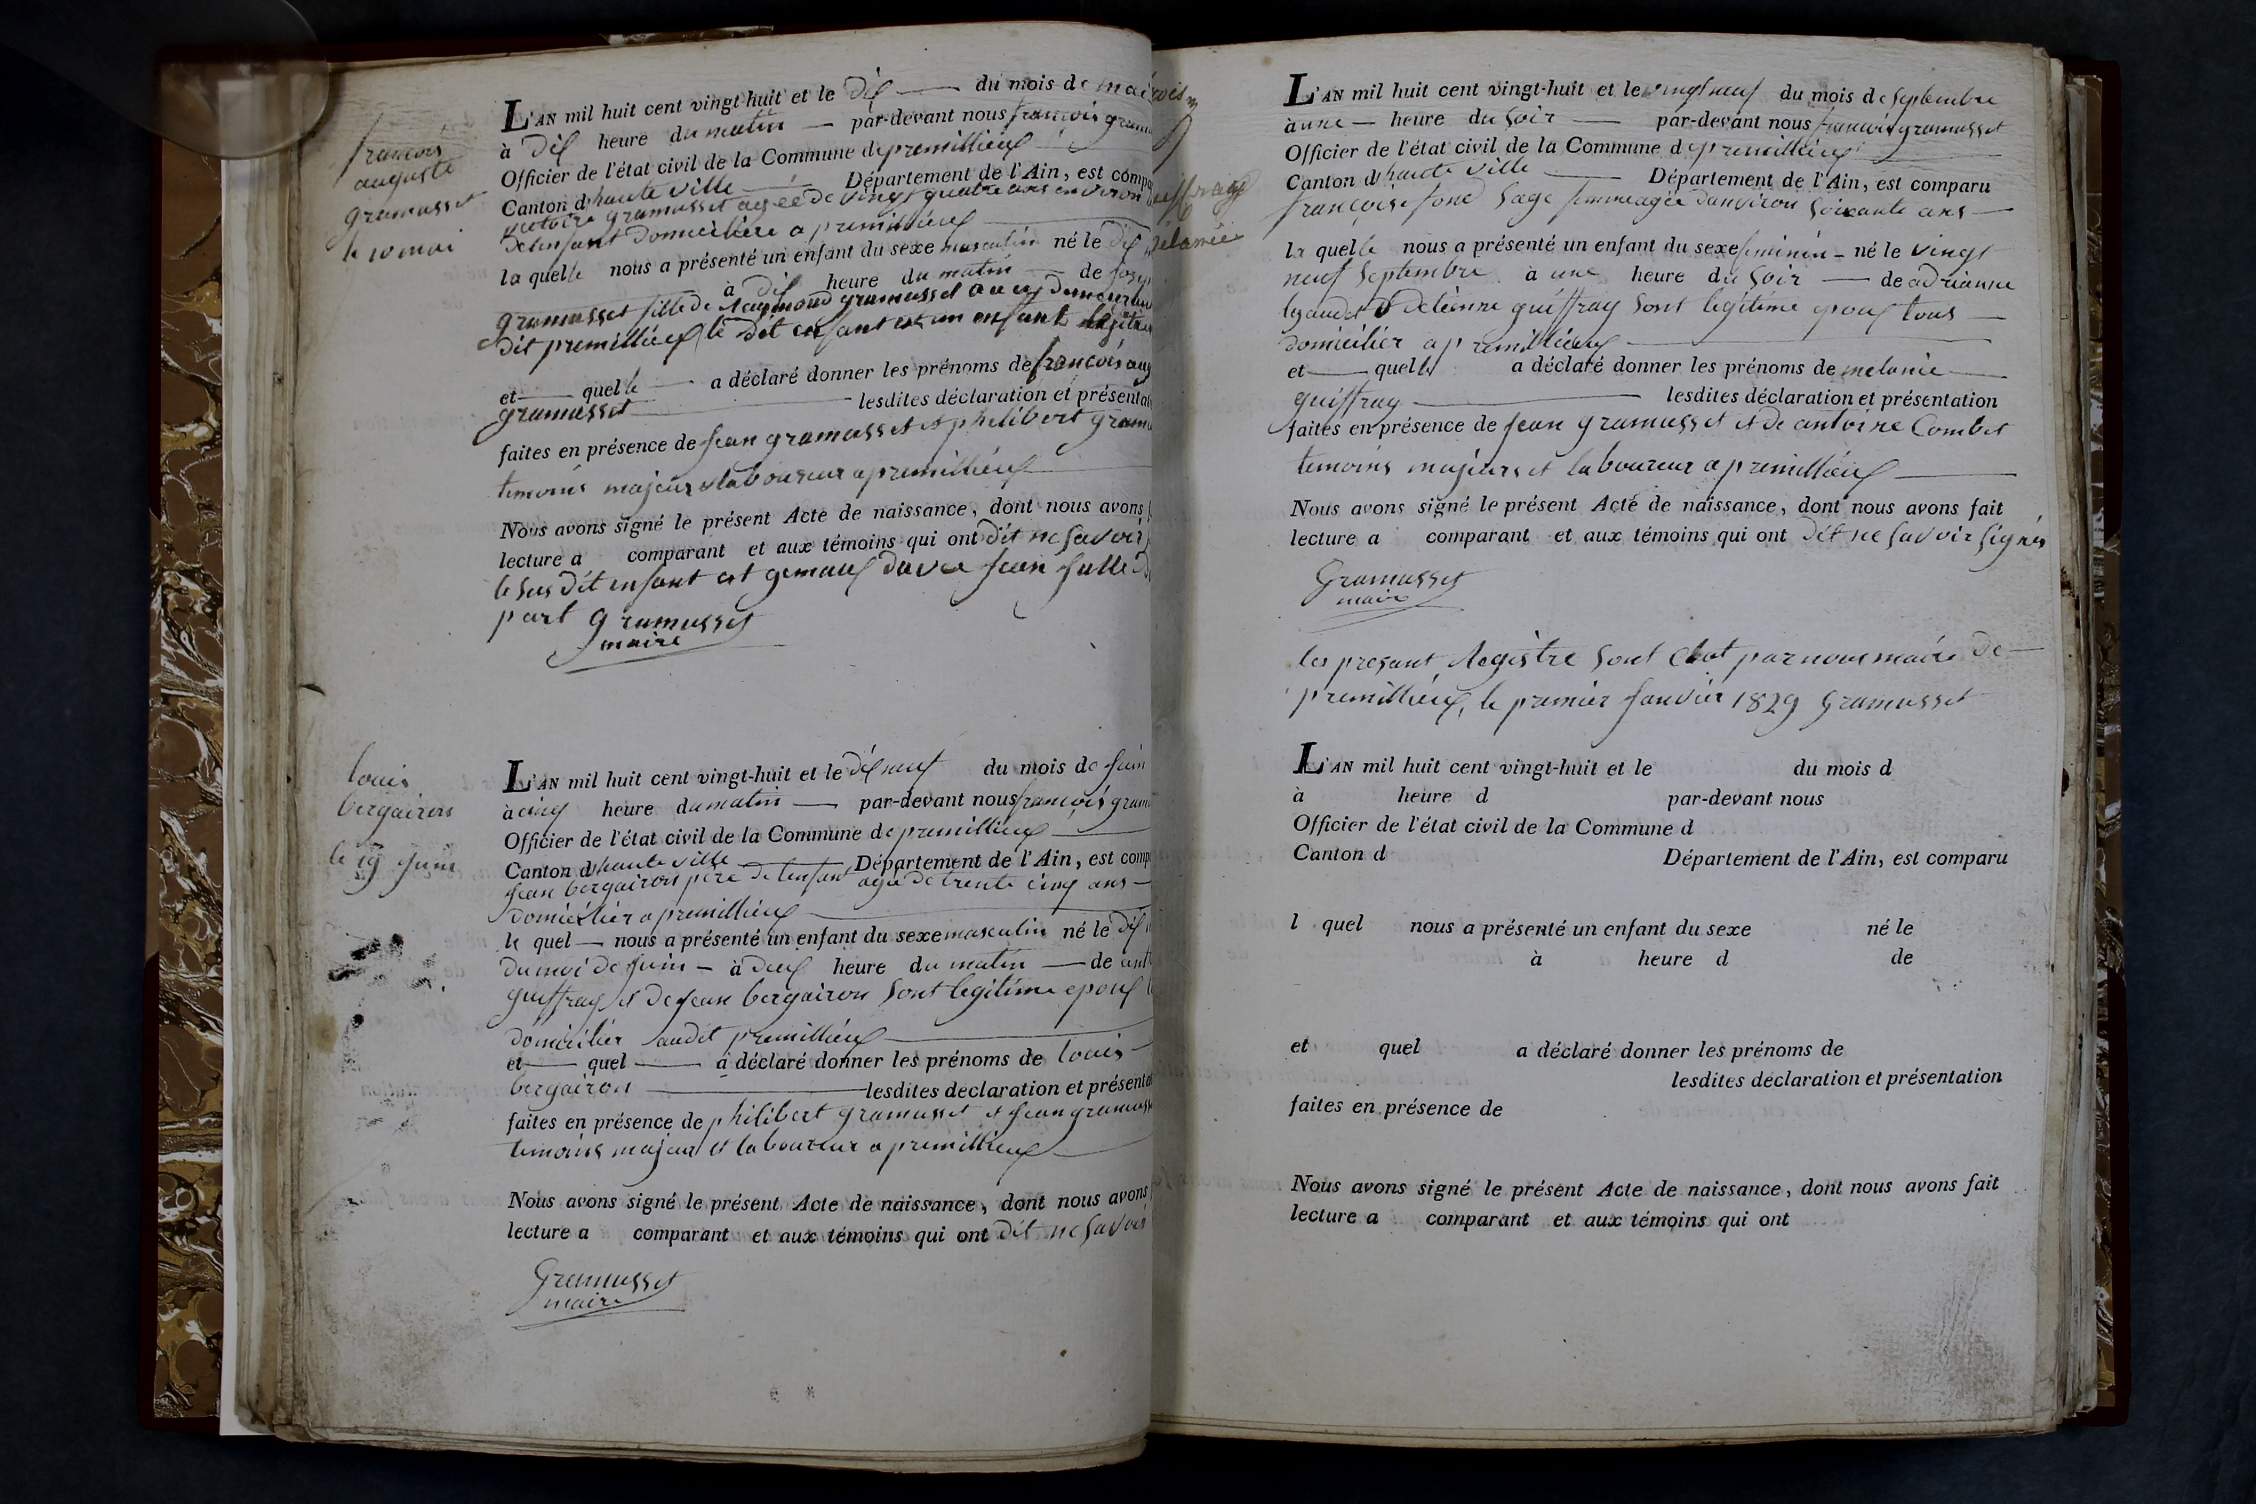 françois
auguste
gramusset
le 10 mai
L'AN mil huit cent vingt-huit et le dix du mois de mai
à dix heure du matin par-devant nous françois gram
Officier de l'état civil de la Commune de premillieux
Canton d'haute ville Département de l'Ain, est compa
victoire gramusset agée de vingt quatre ans environ
delenfant domicilière a premillieux
la quelle nous a présenté un enfant du sexe masculin né le dix
à dix heure du matin de
gramusset fille de Raymond gramusset
dit premillieux le dit enfant est un enfant
et quelle a déclaré donner les prénoms de françois aug
gramusset lesdites déclaration et présentat
faites en présence de jean gramusset et philibert gram
temoins majeur et laboureur a premillieux
Nous avons signé le présent Acte de naissance, dont nous avons
lecture a comparant et aux témoins qui ont dit ne savoir
le sus dit enfant est gemaux davec jean
part gramusset
maire
louis
bergairon
le 19 juin
L'AN mil huit cent vingt-huit et le dix neuf du mois de juin
à cinq heure du matin par-devant nous françois gram
Officier de l'état civil de la Commune de premillieux
Canton d'haute ville Département de l'Ain, est comp
jean bergairon père de lenfant agé de trente cinq ans
domicilier a premillieux
le quel nous a présenté un enfant du sexe masculin né le dix
du moi de juin à deux heure du matin de ant
guiffray et de jean bergairon sont legitime epoux
domicilier audit premillieux
et quel a déclaré donner les prénoms de louis
bergairon lesdites déclaration et présenta
faites en présence de philibert gramusset et jean gramuss
temoins majeur et laboureur a premillieux
Nous avons signé le présent Acte de naissance, dont nous avons
lecture a comparant et aux témoins qui ont dit ne savoir
Gramusset
maire
guiffray
mélanie
L'AN mil huit cent vingt-huit et le vingt neuf du mois de septembre
à une heure du soir par-devant nous françois gramusset
Officier de l'état civil de la Commune de premillieux
Canton d'haute ville Département de l'Ain, est comparu
françoise fond sage femme agée danviron soixante ans
la quelle nous a présenté un enfant du sexe feminin né le vingt
neuf septembre à une heure du soir de adrianne
detienne guiffray sont legitime epoux tous
domicilier a premillieux
et quelle a déclaré donner les prénoms de melanie
guiffray lesdites déclaration et présentation
faites en présence de jean gramusset et de antoine Combet
temoins majeurs et laboureur a premillieux
Nous avons signé le présent Acte de naissance, dont nous avons fait
lecture a comparant et aux témoins qui ont dit ne savoir signés
Gramusset
maire
les presant Registre sont clot par nous maire de
premillieux, le premier janvier 1829 gramusset
L'AN mil huit cent vingt-huit et le du mois d
à heure d par-devant nous
Officier de l'état civil de la Commune d
Canton d Département de l'Ain, est comparu
l quel nous a présenté un enfant du sexe né le
à heure d de
et quel a déclaré donner les prénoms de
lesdites déclaration et présentation
faites en présence de
Nous avons signé le présent Acte de naissance, dont nous avons fait
lecture a comparant et aux témoins qui ont